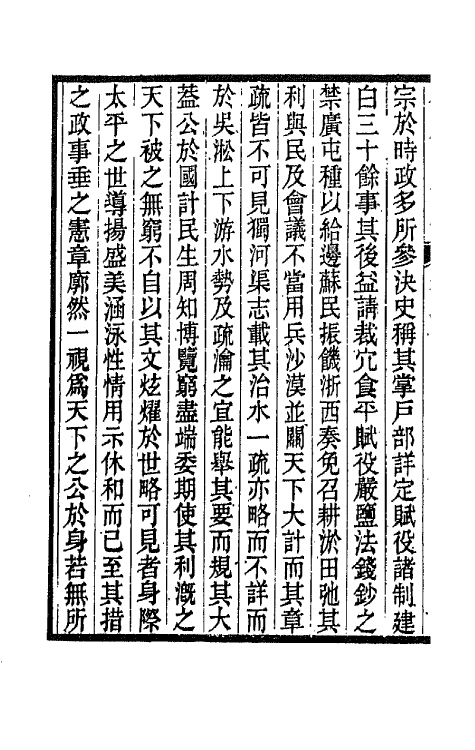 宗於時政多所參決史稱其掌戸部詳定賦役諸制建
白三十餘事其後益請裁冗食平賦役嚴鹽法錢鈔之
禁廣屯種以給邊蘇民振饑浙西奏免召耕淤田弛其
利與民及會議不當用兵沙漠並關天下大計而其章
疏皆不可見獨河渠志載其治水一疏亦略而不詳而
於吳淞上下游水勢及疏瀹之宜能舉其要而規其大
葢公於國計民生周知博覽窮盡端委期使其利漑之
天下被之無窮不自以其文炫燿於世略可見者身際
太平之世導揚盛美涵泳性情用示休和而已至其措
之政事垂之憲章廓然一視爲天下之公於身若無所